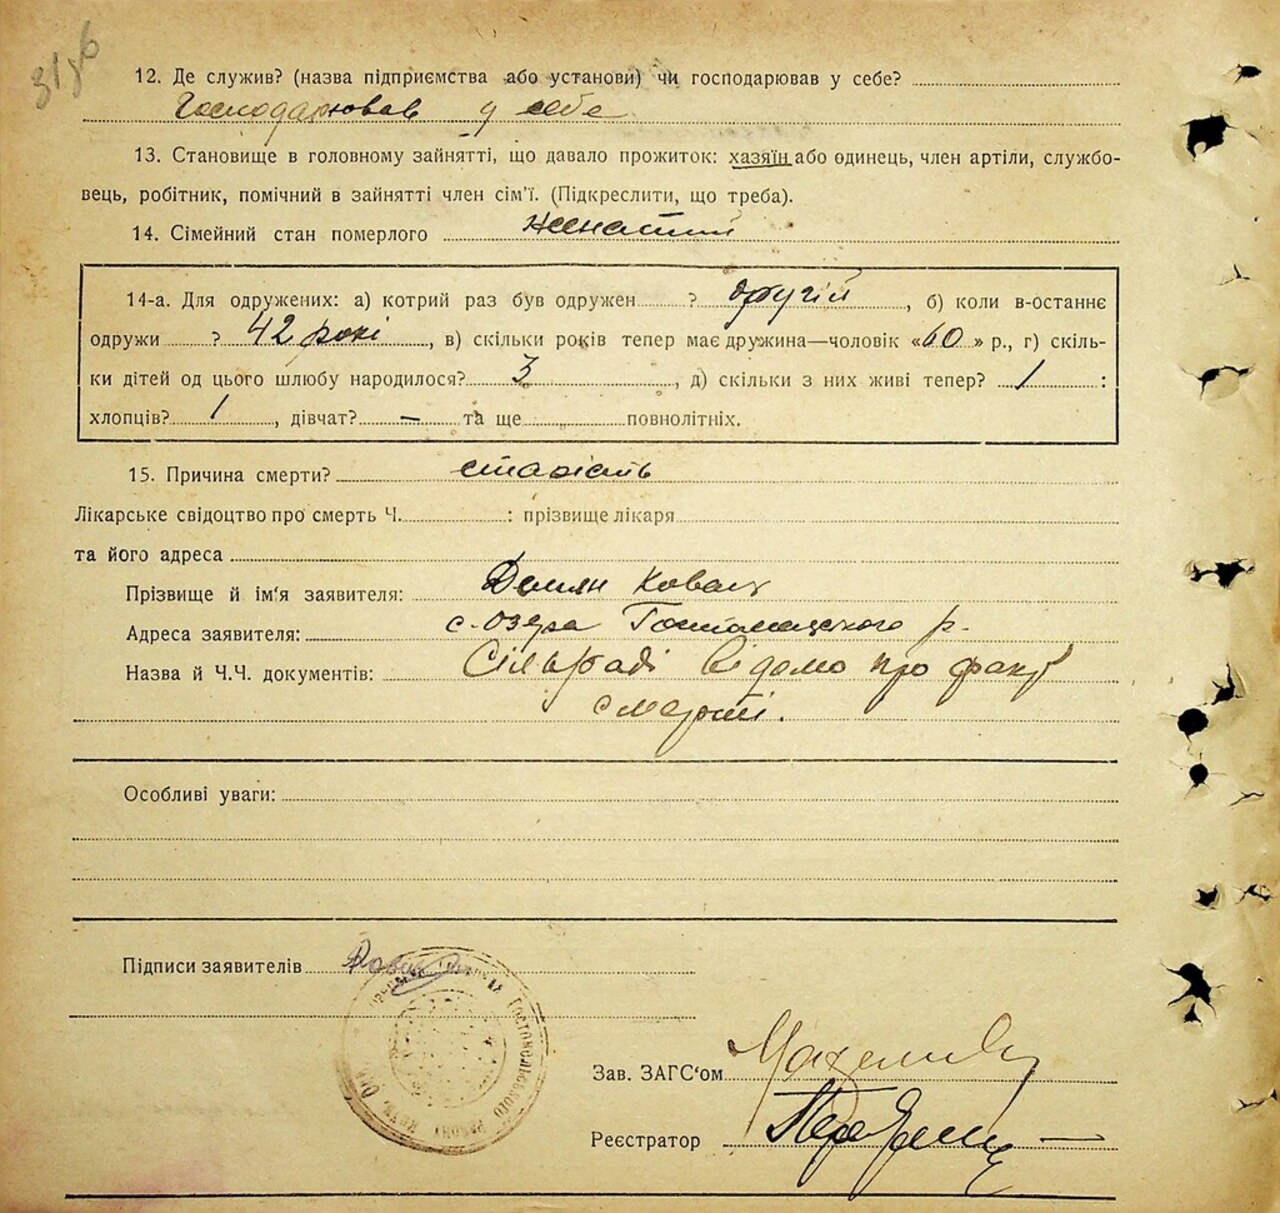 31/6
12. Де служив? (назва підприємства або установи) чи господарював у себе?
Господарював у себе
13. Становище в головному зайнятті, що давало прожиток: хазяїн або одинець, член артіли, службо-
вець, робітник, помічний в зайнятті член сім'ї. (Підкреслити, що треба).
14. Сімейний стан померлого женатий
14-а. Для одружених: а) котрий раз був одружен ? другій, б) коли в-останнє
одружи ? 42 рокі, в) скільки років тепер має дружина—чоловік «60» р., г) скіль-
ки дітей од цього шлюбу народилося? 3, д) скільки з них живі тепер? 1 :
хлопців? 1, дівчат? — та ще повнолітніх.
15. Причина смерти? старість
Лікарське свідоцтво про смерть Ч. : прізвище лікаря
та його адреса
Прізвище й ім'я заявителя: Демян Коваль
Адреса заявителя: с. Озера Гостомельского р.
Назва й Ч.Ч. документів: Сільраді відомо про факт
смерті.
Особливі уваги:
Підписи заявителів Коваль
Гостомельського району
Зав. ЗАГС'ом
Реєстратор